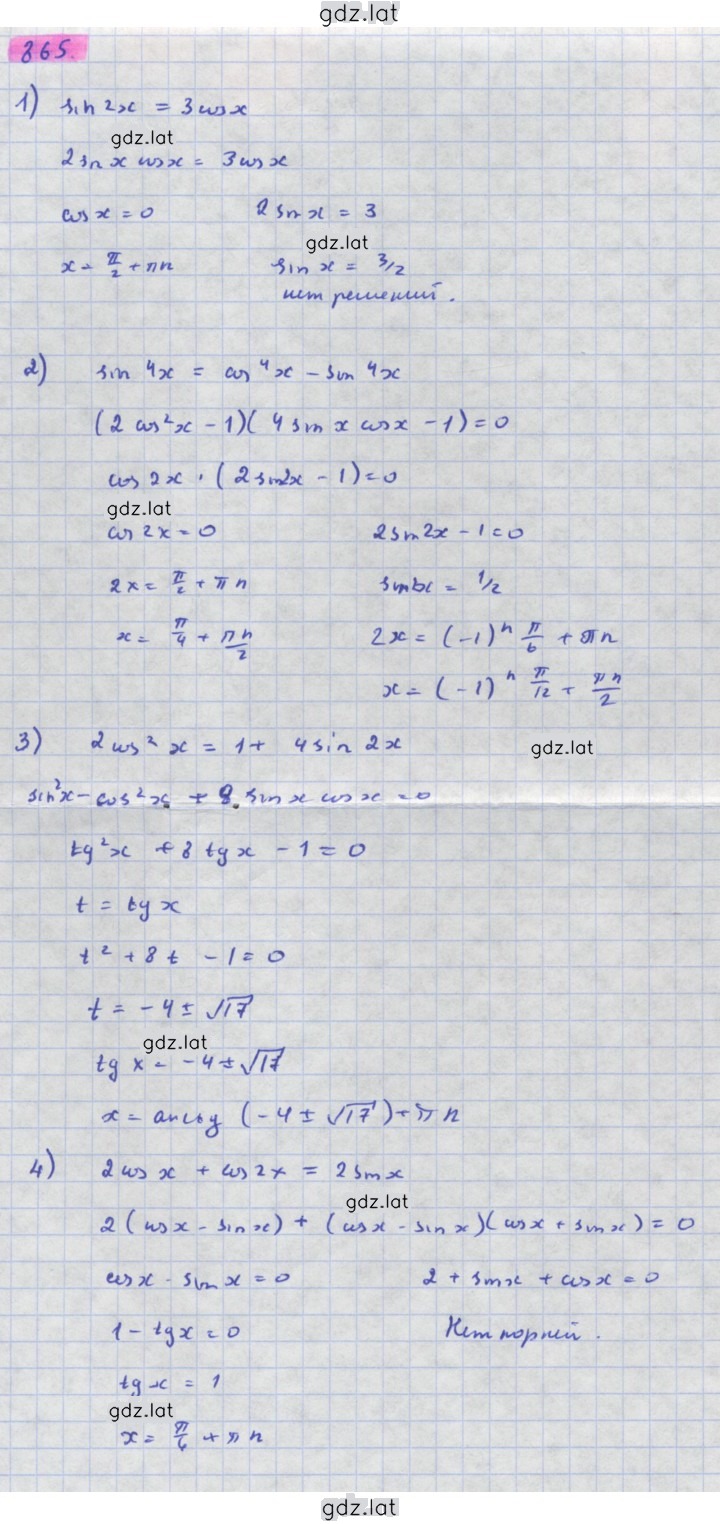 gdz.lat
865.
1) sin 2x = 3 cos x
gdz.lat
2 sin x cos x = 3 cos x
cos x = 0 2 sin x = 3
gdz.lat
x = π/2 + πn sin x = 3/2
нет решений.
2) sin 4x = cos⁴x - sin⁴x
(2 cos²x - 1)(4 sin x cos x - 1) = 0
cos 2x · (2 sin 2x - 1) = 0
gdz.lat
cos 2x = 0 2 sin 2x - 1 = 0
2x = π/2 + πn sin 2x = 1/2
x = π/4 + πn/2 2x = (-1)ⁿ π/6 + πn
x = (-1)ⁿ π/12 + πn/2
3) 2 cos²x = 1 + 4 sin 2x gdz.lat
sin²x - cos²x + 8 sin x cos x = 0
tg²x + 8 tg x - 1 = 0
t = tg x
t² + 8t - 1 = 0
t = -4 ± √17
gdz.lat
tg x = -4 ± √17
x = arctg (-4 ± √17) + πn
4) 2 cos x + cos 2x = 2 sin x
gdz.lat
2 (cos x - sin x) + (cos x - sin x)(cos x + sin x) = 0
cos x - sin x = 0 2 + sin x + cos x = 0
1 - tg x = 0 Нет корней.
tg x = 1
gdz.lat
x = π/4 + πn
gdz.lat